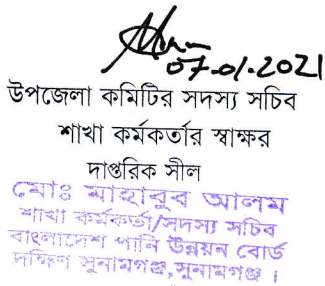 07-01-2021
উপজেলা কমিটির সদস্য সচিব
শাখা কর্মকর্তার স্বাক্ষর
দাপ্তরিক সীল
মোঃ মাহাবুব আলম
শাখা কর্মকর্তা/সদস্য সচিব
বাংলাদেশ পানি উন্নয়ন বোর্ড
দক্ষিণ সুনামগঞ্জ,সুনামগঞ্জ।